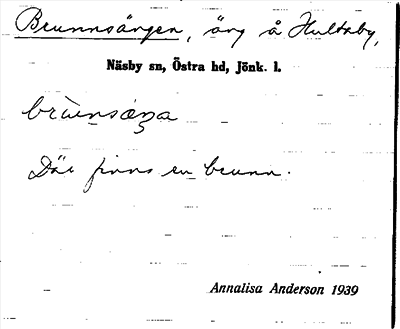 Brunnsängen, äng å Hultaby,
Näsby sn, Östra hd, Jönk. l.
Där finns en brunn.
Annalisa Anderson 1939